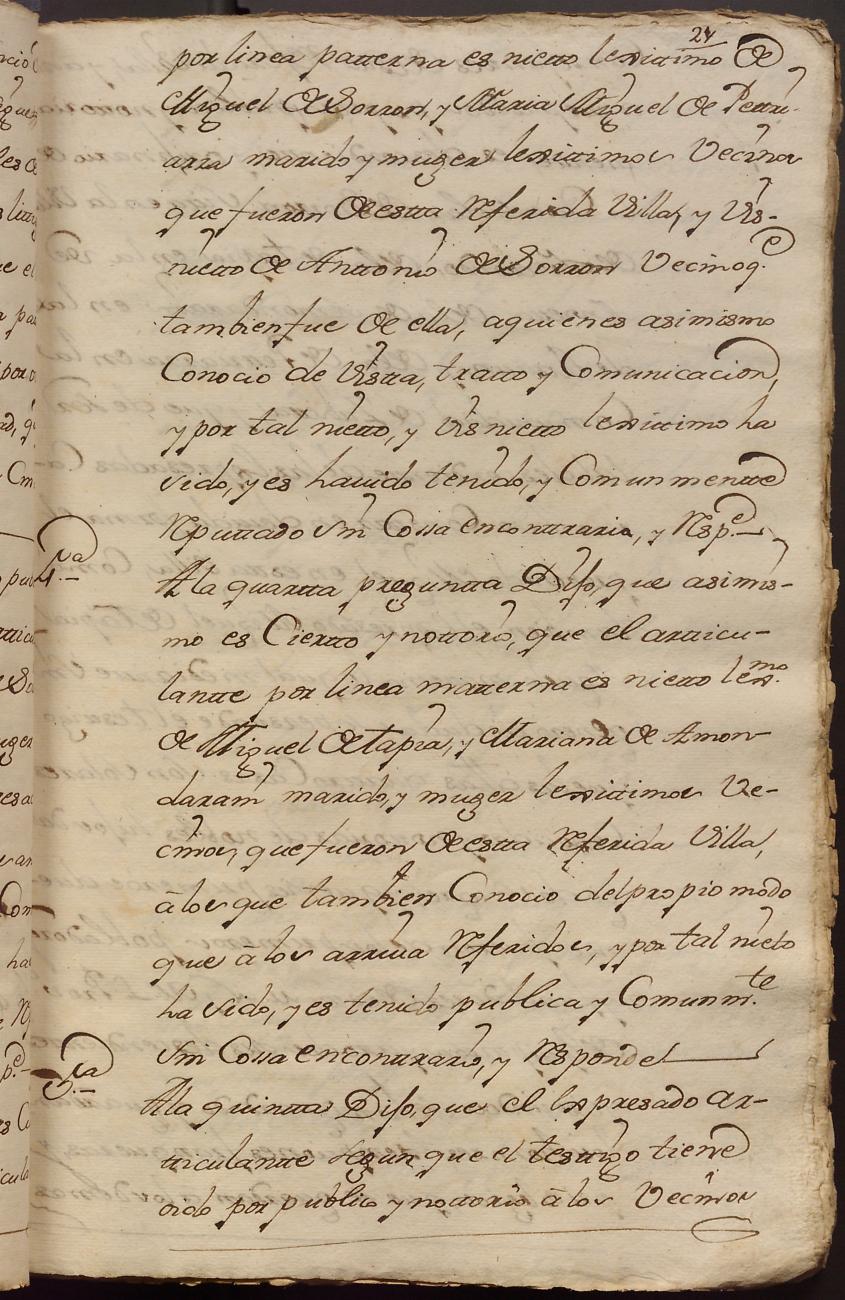 24
por linea patterna es nieto lexittimo de
Miguel de Sorron, y Maria Miguel de Petrri-
arza marido y muger lexittimos Vecinos
que fueron de estta Referida Villa, y Vis-
nietto de Anttonio de Sorron Vecino q.e
tambien fue de ella, a quienes asimismo
Conocio de Vistta, tratto y Comunicacion,
y por tal nietto, y Visnietto lexittimo ha
sido, y es havido tenido, y Comunmentte
Reputtado sin Cossa en conttrario, y Resp.e
4.a
A la quartta preguntta Dijo, que asimis-
mo es Ciertto y nottorio, que el articu-
lantte por linea matterna es nietto lex.mo
de Miguel de Tapia, y Mariana de Amon-
darain marido, y muger lexittimos Ve-
cinos, que fueron de estta Referida Villa,
â los que tambien Conocio del propio modo
que â los arriva Referidos, y por tal nieto
ha sido, y es tenido publica y Comunm.te
sin Cossa en conttrario, y Responde
5.a
A la quintta Dijo, que el Expresado ar-
tticulantte segun que el testtigo tiene
oido por publico y nottorio â los Vecinos